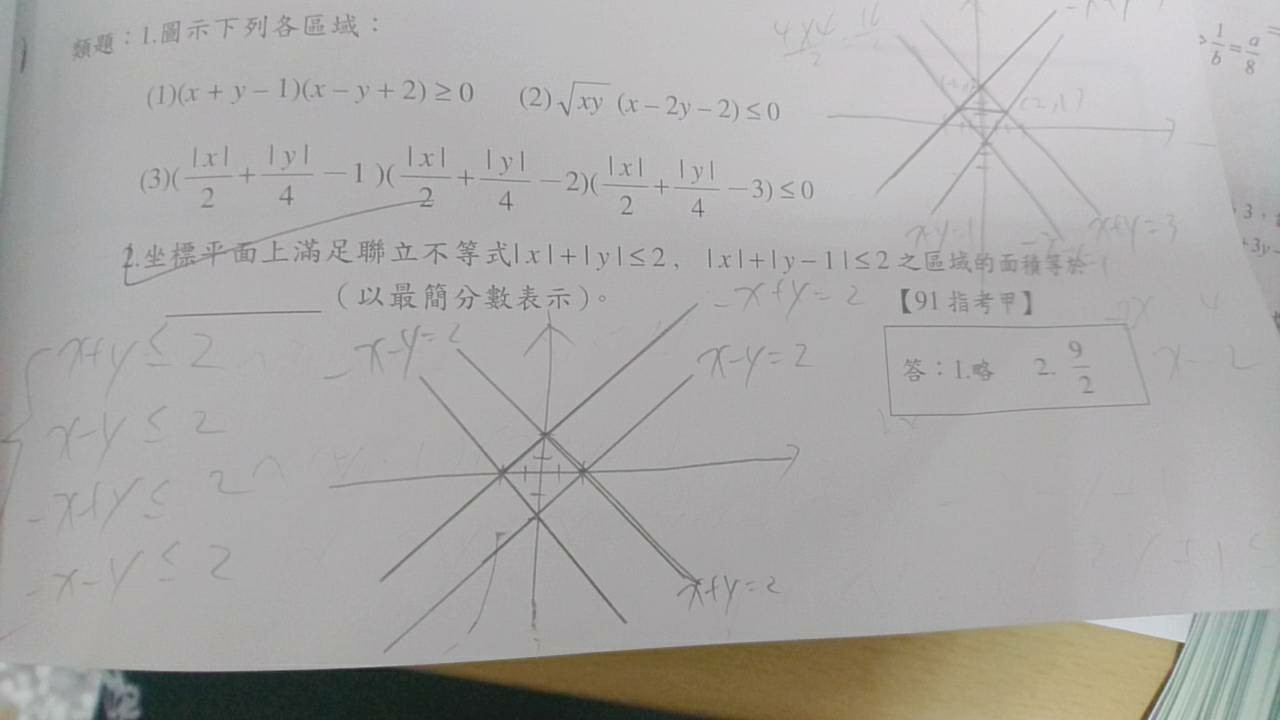 類題：1.圖示下列各區域：
(1)(x + y − 1)(x − y + 2) ≥ 0 (2) √xy (x − 2y − 2) ≤ 0
(3)(|x|/2 + |y|/4 − 1 )(|x|/2 + |y|/4 − 2)(|x|/2 + |y|/4 − 3) ≤ 0
2.坐標平面上滿足聯立不等式|x|+|y|≤2， |x|+|y−1|≤2之區域的面積等於
（以最簡分數表示）。 【91 指考甲】
答：1.略 2. 9/2
x+y ≤ 2
x−y ≤ 2
−x+y ≤ 2
−x−y ≤ 2
−x−y=2
−x+y=2
x−y=2
x+y=2
x+y=3
1/b = a/8